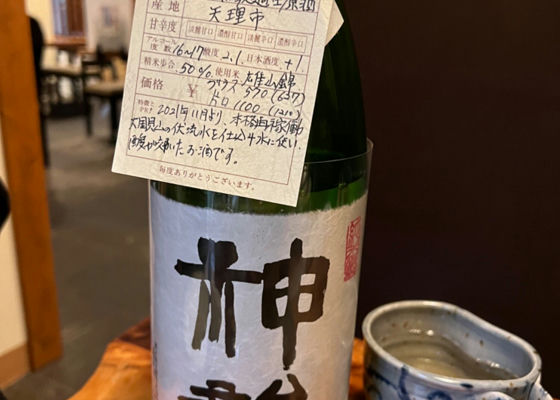 産地 天理市
甘辛度 淡麗甘口 濃醇甘口 淡麗辛口 濃醇辛口
アルコール度数 16〜17 酸度 2.1 日本酒度 +1
精米歩合 50% 使用米 雄山錦
価格 ¥ グラス 570 (627)
1100 (1210)
2021年11月より、本格再稼働
大国見山の伏流水を仕込み水に使い、
酒でお酒です。
毎度ありがとうございます。
神